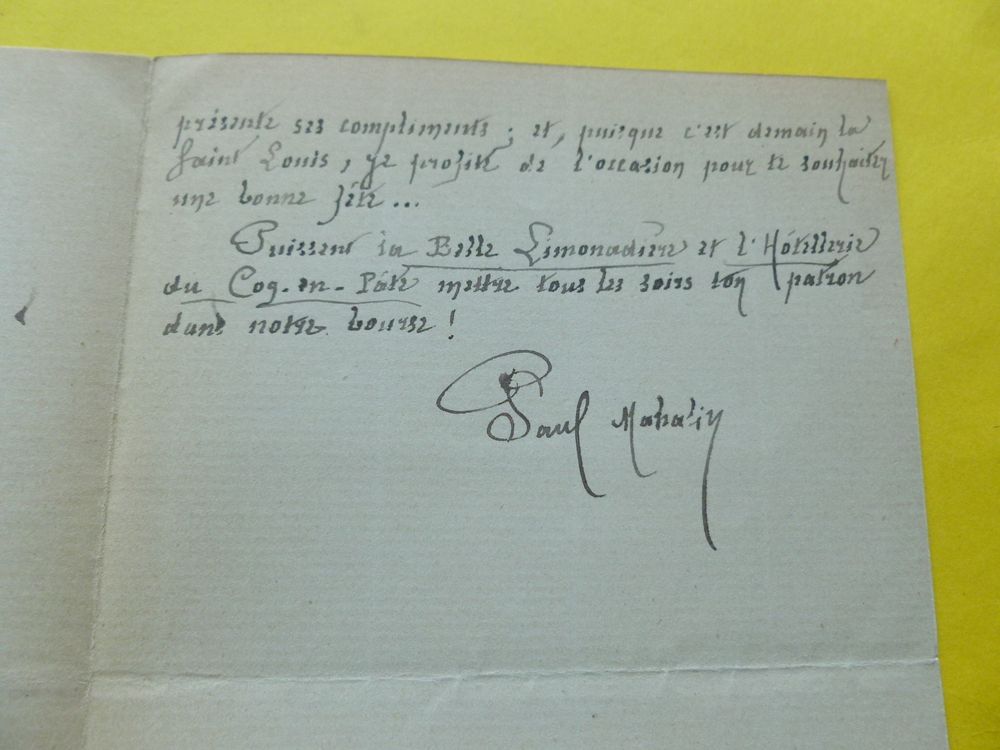 présente ses compliments ; et, puisque c'est demain la
Saint Louis, je profite de l'occasion pour te souhaiter
une bonne fête...
Puissent la Belle Limonadière et l'Hôtellerie
du Coq-en-Pâte mettre tous les soirs ton patron
dans notre bourse !
Paul Mahalin